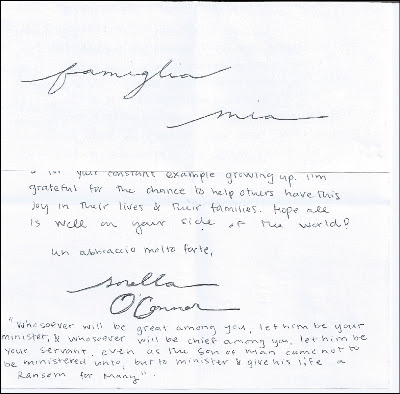 famiglia
mia
for your constant example growing up. I'm
grateful for the chance to help others have this
joy in their lives & their families. Hope all
is well on your side of the world!
un abbraccio molto forte,
Sorella
O'Connor
"Whosoever will be great among you, let him be your
minister, & whosoever will be chief among you, let him be
your servant, even as the Son of man came not to
be ministered unto, but to minister & give his life a
Ransom for Many".